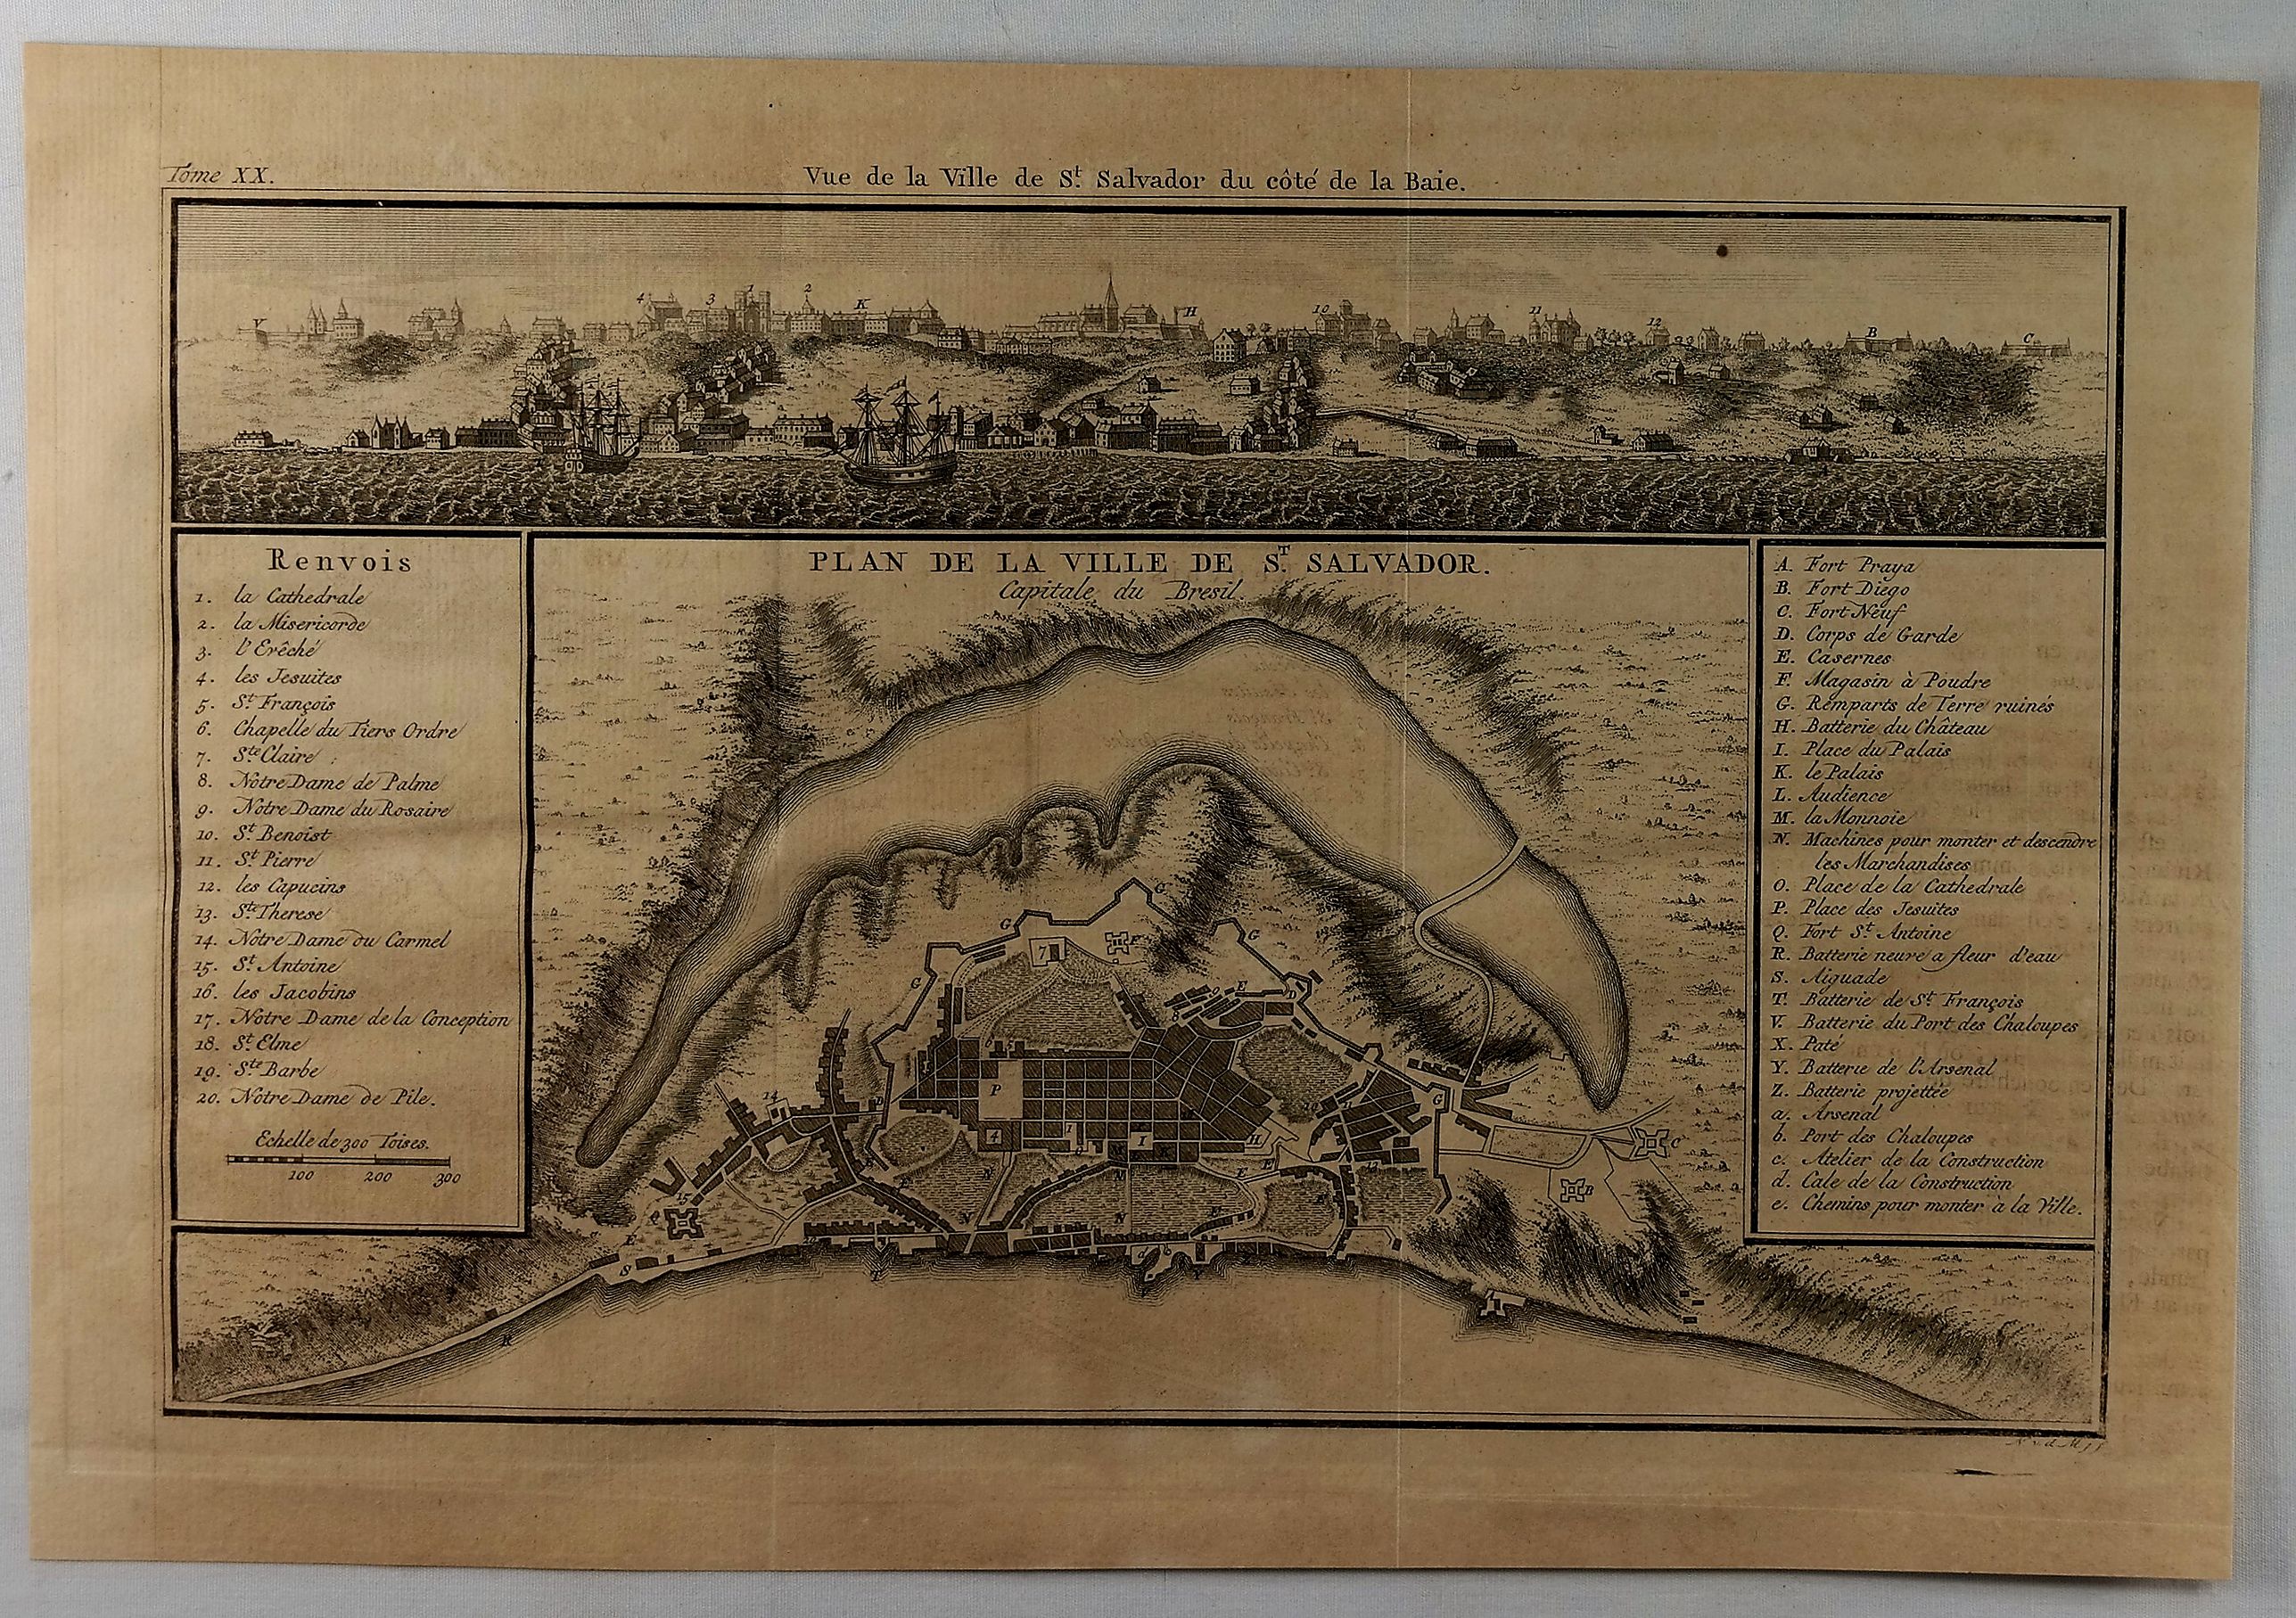 Tome XX.
Vue de la Ville de St. Salvador du côté de la Baie.
V
4
3
1
2
K
H
10
11
12
B
C
Renvois
1. la Cathedrale
2. la Misericorde
3. l'Evêché
4. les Jesuites
5. St. François
6. Chapelle du Tiers Ordre
7. Ste Claire
8. Notre Dame de Palme
9. Notre Dame du Rosaire
10. St. Benoist
11. St. Pierre
12. les Capucins
13. Ste Therese
14. Notre Dame du Carmel
15. St. Antoine
16. les Jacobins
17. Notre Dame de la Conception
18. St. Elme
19. Ste Barbe
20. Nôtre Dame de Pile.
Echelle de 300 Toises.
100 200 300
PLAN DE LA VILLE DE ST. SALVADOR.
Capitale du Bresil.
A. Fort Praya
B. Fort Diego
C. Fort Neuf
D. Corps de Garde
E. Casernes
F. Magasin à Poudre
G. Remparts de Terre ruinés
H. Batterie du Château
I. Place du Palais
K. le Palais
L. Audience
M. la Monnoie
N. Machines pour monter et descendre
les Marchandises
O. Place de la Cathedrale
P. Place des Jesuites
Q. Fort St. Antoine
R. Batterie neuve a fleur d'eau
S. Aiguade
T. Batterie de St. François
V. Batterie du Port des Chaloupes
X. Paté
Y. Batterie de l'Arsenal
Z. Batterie projettée
a. Arsenal
b. Port des Chaloupes
c. Atelier de la Construction
d. Cale de la Construction
e. Chemins pour monter à la Ville.
G
G
G
G
7
F
E
D
P
14
4
I
I
H
G
C
B
15
N
N
N
N
S
T
Y
R